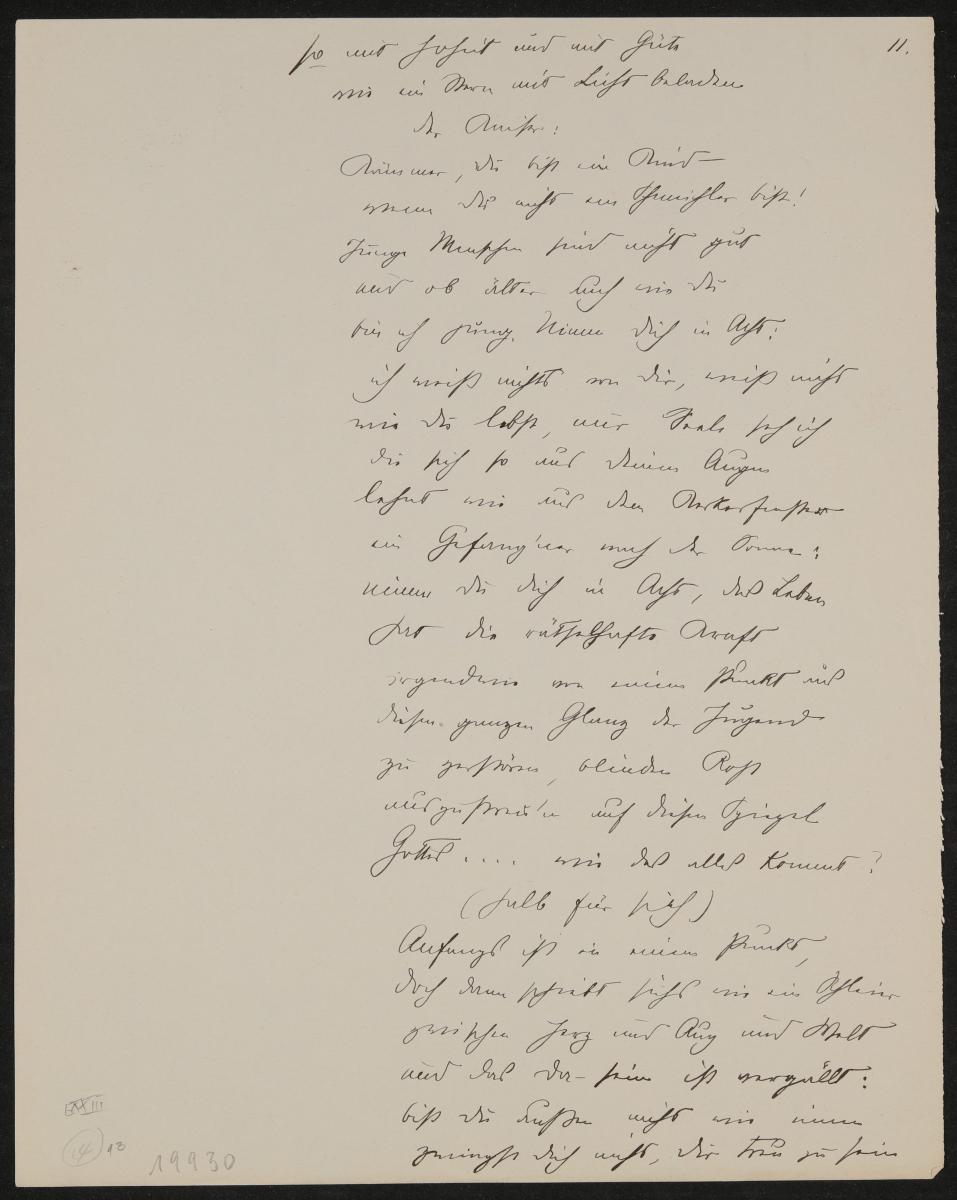 11.
so mit Hoheit und mit Güte
wie ein Stern mit Licht beladen
der Kaiser:
Kämmrer, du bist ein Kind
wenn du nicht ein Schmeichler bist!
Junge Menschen sind nicht gut
und ob älter auch wie du
bin ich jung. Nimm dich in Acht:
ich weiß nichts von dir, weiß nicht
wie du lebst, nur Seele seh ich
die sich so aus deinen Augen
lehnt wie aus dem Kerkerfenster
ein Gefang'ner nach der Sonne:
nimm du dich in Acht, das Leben
hat die räthselhafte Kraft
irgendwie von einem Punkt aus
diesen ganzen Glanz der Jugend
zu zerstören, blinden Rost
auszustreu'n auf diesen Spiegel
Gottes .... wie das alles kommt?
(halb für sich)
Anfangs ists in einem Punkt,
doch dann schiebt sichs wie ein Schleier
zwischen Herz und Aug und Welt
und das Da-sein ist vergällt:
bist du Außen nicht wie innen
zwingst dich nicht, dir treu zu sein
19930